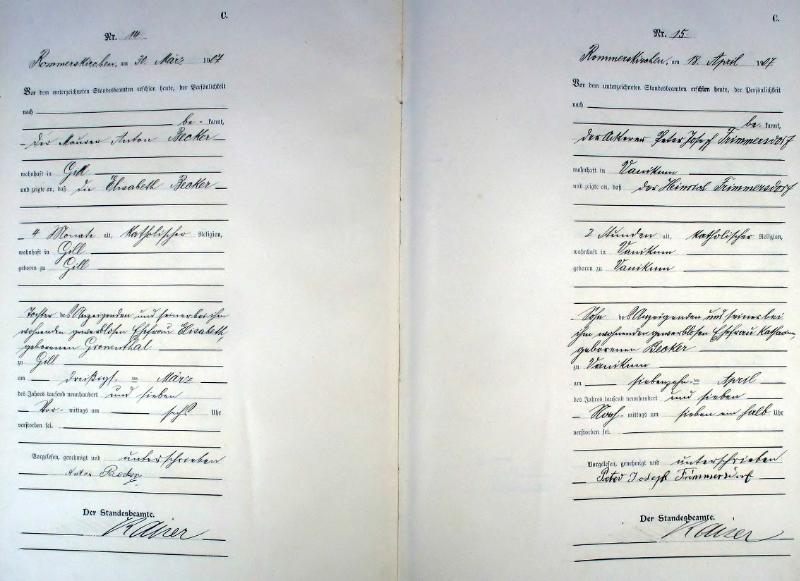 C.
Nr. 14
Rommerskirchen, am 30. März 1907
Vor dem unterzeichneten Standesbeamten erschien heute, der Persönlichkeit
nach
be- kannt,
der Maurer Anton Becker
wohnhaft in Gill
und zeigte an, daß die Elisabeth Becker
4 Monate alt, katholischer Religion,
wohnhaft in Gill
geboren zu Gill
Tochter des Anzeigenden und seiner bei ihm
wohnenden gewerblosen Ehefrau Elisabeth,
geborenen
zu Gill
am dreißigst- en März
des Jahres tausend neunhundert und sieben
Vor- mittags um sechs Uhr
verstorben sei.
Vorgelesen, genehmigt und unterschrieben
Anton Becker
Der Standesbeamte.
Kaiser
C.
Nr. 15
Rommerskirchen, am 18. April 1907
Vor dem unterzeichneten Standesbeamten erschien heute, der Persönlichkeit
nach
be- kannt,
der Ackerer Peter Josef Trimmersdorf
wohnhaft in Vanikum
und zeigte an, daß der Heinrich Trimmersdorf
2 Stunden alt, katholischer Religion,
wohnhaft in Vanikum
geboren zu Vanikum
Sohn des Anzeigenden und seiner bei
ihm wohnenden gewerblosen Ehefrau
geborenen Becker
zu Vanikum
am siebenzehn- ten April
des Jahres tausend neunhundert und sieben
Nach- mittags um sieben ein halb Uhr
verstorben sei.
Vorgelesen, genehmigt und unterschrieben
Peter Joseph Trimmersdorf
Der Standesbeamte.
Kaiser